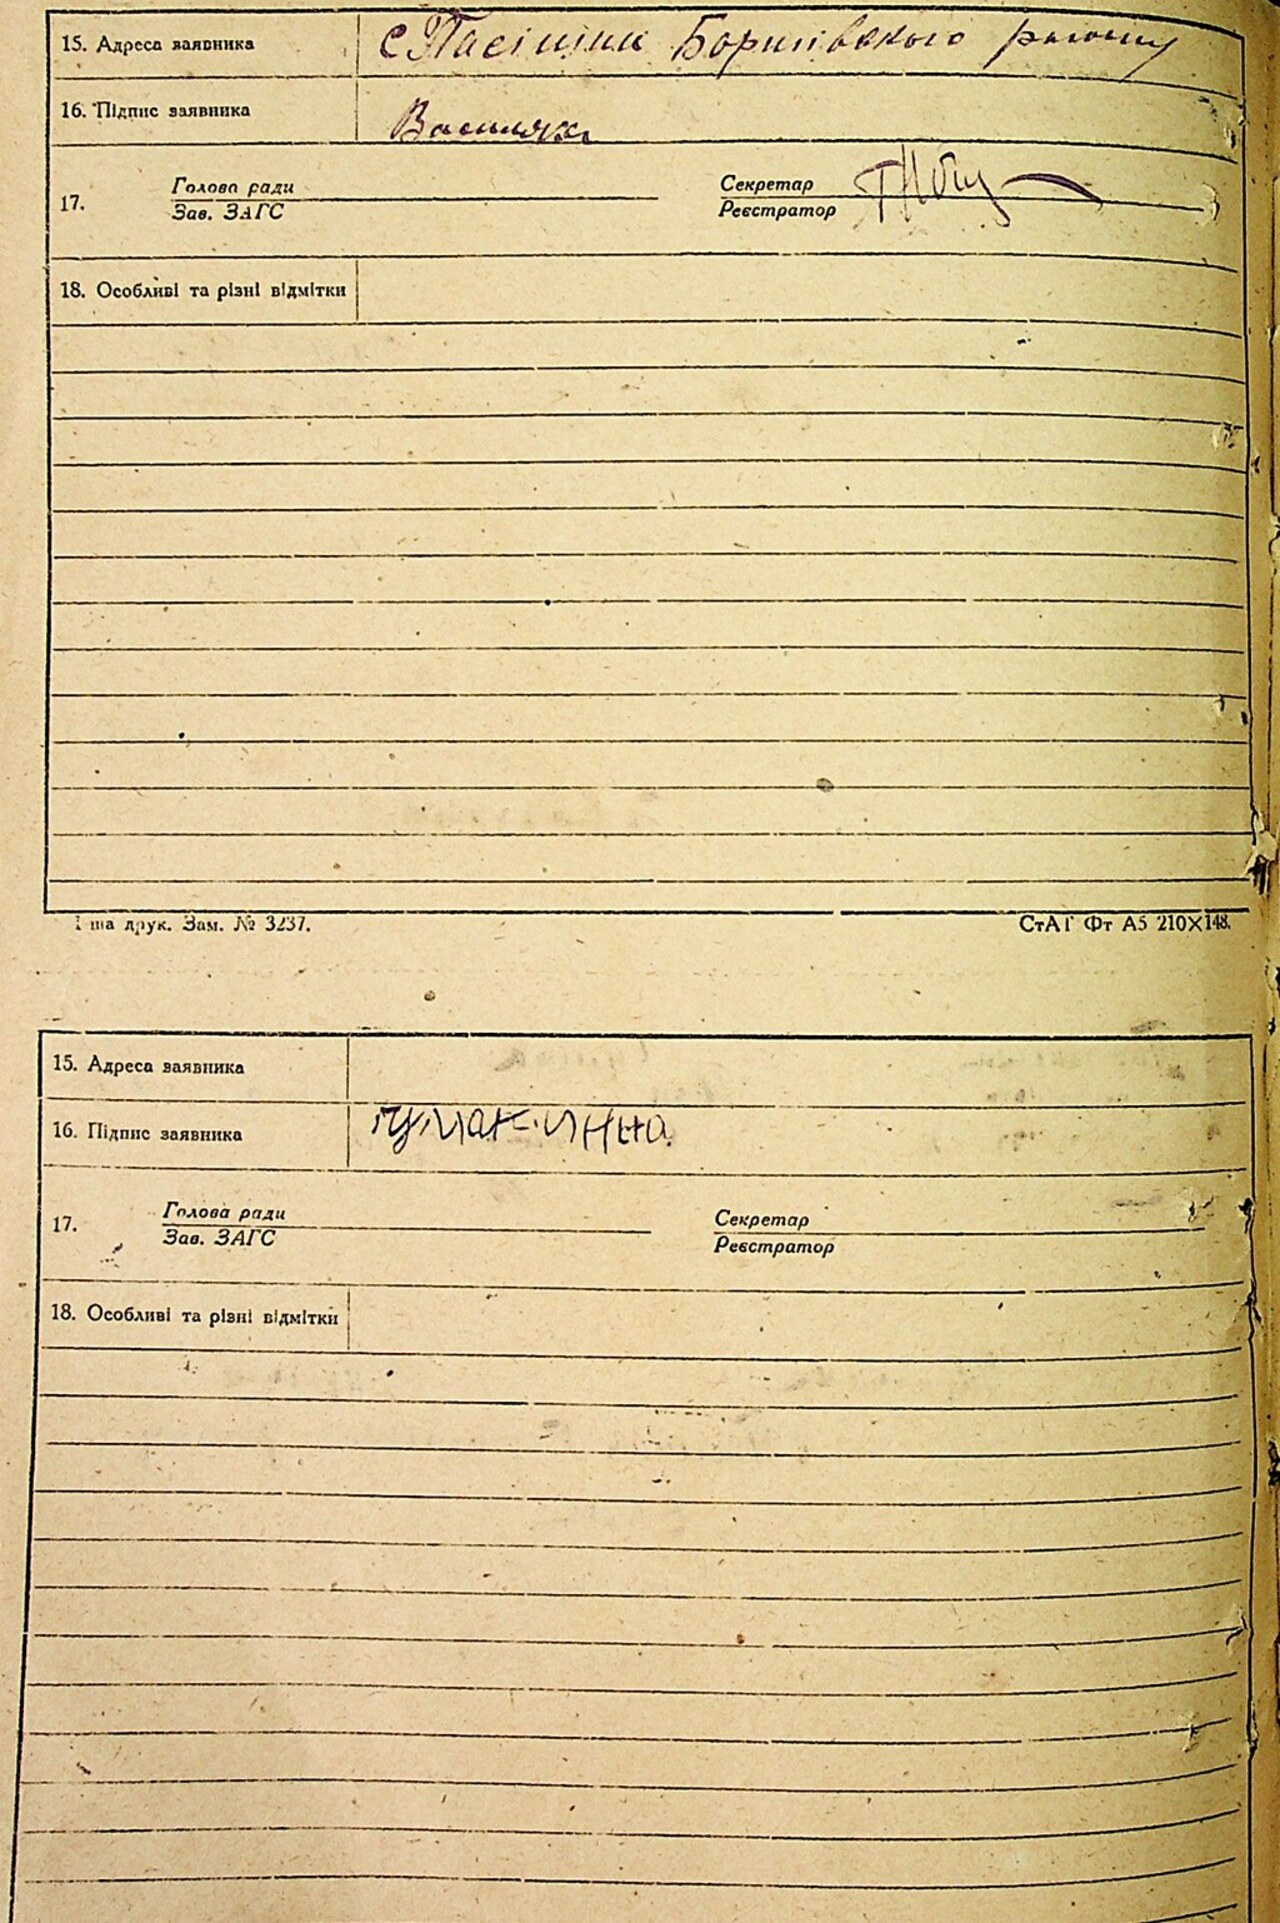 15. Адреса заявника с Пасіціли Борисівського району
16. Підпис заявника Василяка
17. Голова ради Секретар
Зав. ЗАГС Реєстратор
18. Особливі та різні відмітки
друк. Зам. № 3237. СтАГ Фт А5 210×148.
15. Адреса заявника
16. Підпис заявника
17. Голова ради Секретар
Зав. ЗАГС Реєстратор
18. Особливі та різні відмітки